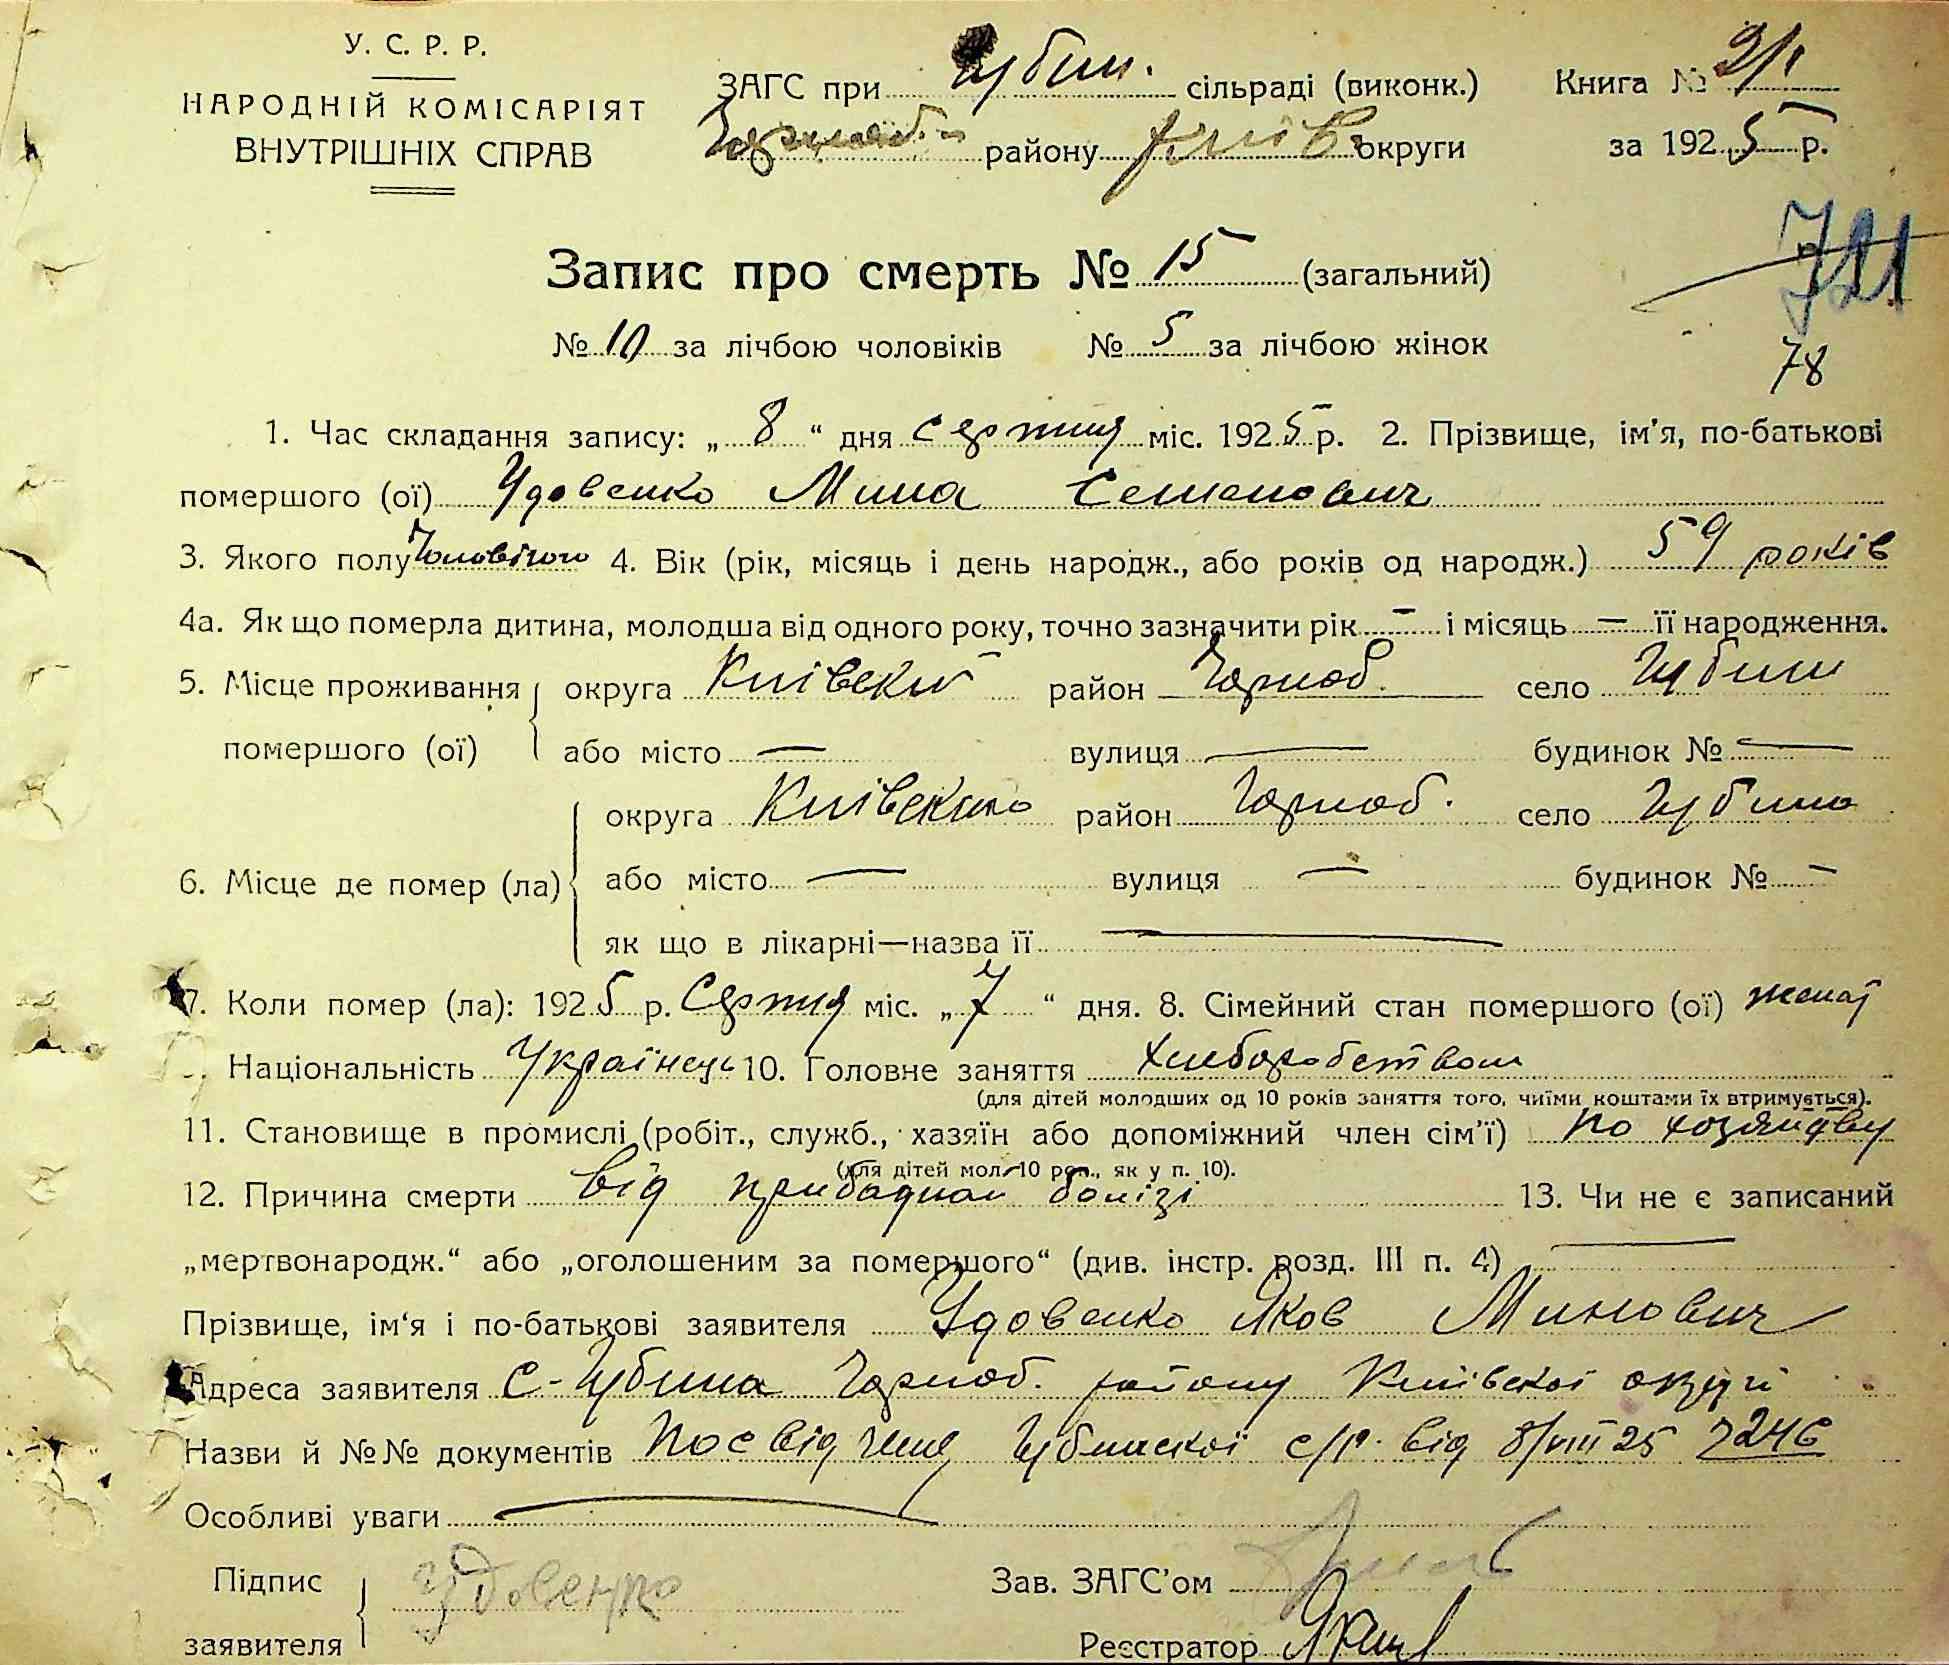 У. С. Р. Р.
НАРОДНІЙ КОМІСАРІЯТ
ВНУТРІШНІХ СПРАВ
ЗАГС при Губин. сільраді (виконк.) Книга №
Чорноб. району Київ округи за 1925 р.
721
Запис про смерть № 15 (загальний)
№ 10 за лічбою чоловіків № 5 за лічбою жінок
78
1. Час складання запису: „ 8 “ дня серпня міс. 1925 р. 2. Прізвище, ім'я, по-батькові
помершого (ої) Удовенко Мина Семенович
3. Якого полу Чоловічого 4. Вік (рік, місяць і день народж., або років од народж.) 59 років
4а. Як що померла дитина, молодша від одного року, точно зазначити рік – і місяць – її народження.
5. Місце проживання помершого (ої) округа Київский район Чорноб. село Губин
або місто — вулиця — будинок № —
6. Місце де помер (ла) округа район Чорноб. село Губино
або місто — вулиця — будинок № –
як що в лікарні—назва її —
7. Коли помер (ла): 1925 р. Серпня міс. „ 7 “ дня. 8. Сімейний стан помершого (ої) женат
Національність Українець 10. Головне заняття хлиборобством
(для дітей молодших од 10 років заняття того, чиїми коштами їх втримується).
11. Становище в промислі (робіт., служб., хазяїн або допоміжний член сім'ї) по
(для дітей мол. 10 рок., як у п. 10).
12. Причина смерти від болізі 13. Чи не є записаний
„мертвонародж.“ або „оголошеним за помершого“ (див. інстр. розд. III п. 4) —
Прізвище, ім'я і по-батькові заявителя Удовенко Яков Минович
Адреса заявителя с-Губина Чорноб. району Київскої округи
Назви й №№ документів Посвідченя Губинскої с/р. від 8/VIII 25 246
Особливі уваги —
Підпис заявителя Удовенко
Зав. ЗАГС'ом
Реєстратор